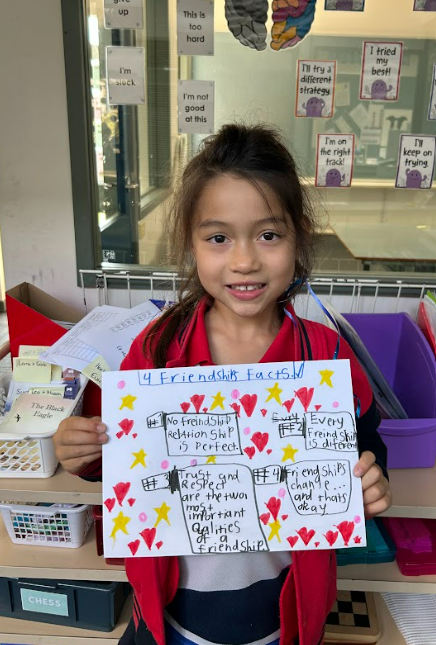 give
up
This is
too
hard
I'm
stuck
I'm not
good
at this
I'll try a
different
strategy
I tried
my
best!
I'm on
the right
track!
I'll
keep on
trying.
4 Friendships Facts.
#1 No freindship
relationship
is perfect.
#2 Every
Freindship
is different
#3 Trust and
respect
are the two
most
imortiant
qalities
of a
friendship
#4 friendships
change...
and thats
okay
The Black
Eagle
CHESS